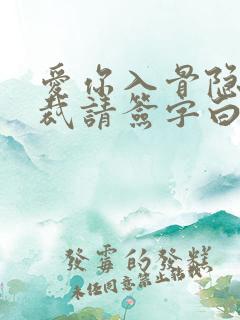 愛你入骨隐
裁請簽字白
發霉的發糕
未经同意禁止転載